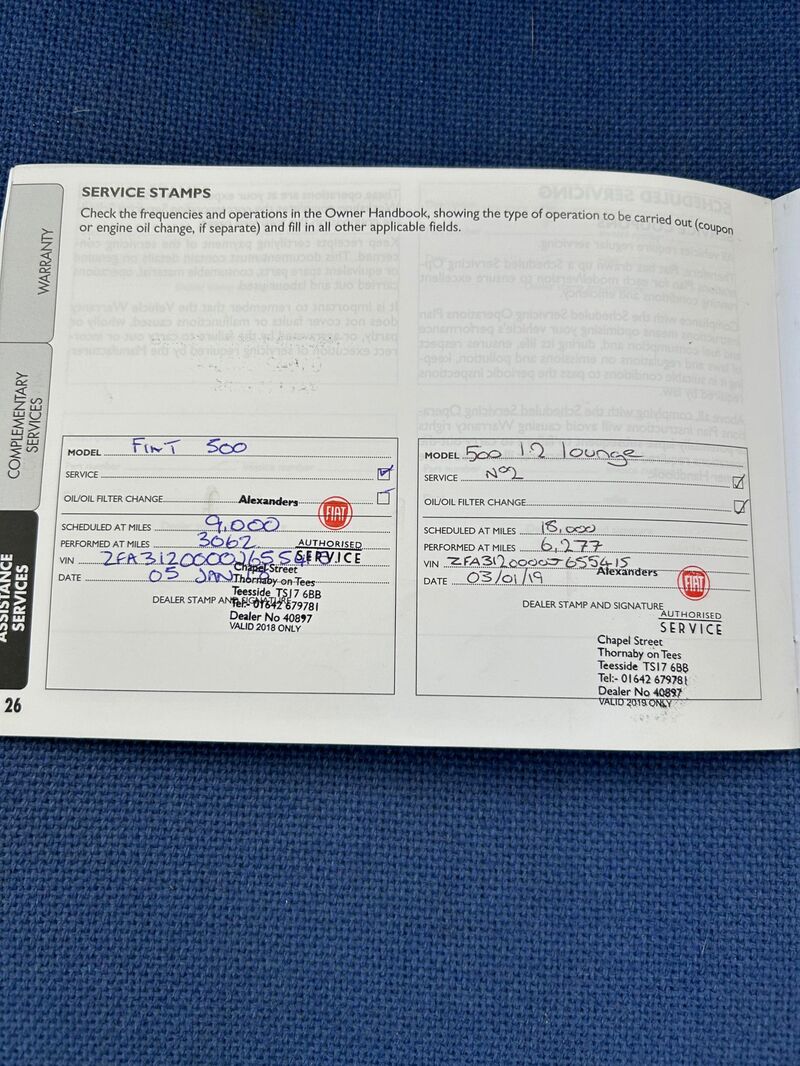 SERVICE STAMPS
Check the frequencies and operations in the Owner Handbook, showing the type of operation to be carried out (coupon
or engine oil change, if separate) and fill in all other applicable fields.
WARRANTY
COMPLEMENTARY
SERVICES
ASSISTANCE
SERVICES
26
MODEL FIAT 500
SERVICE
OIL/OIL FILTER CHANGE
Alexanders
FIAT
SCHEDULED AT MILES 9,000
PERFORMED AT MILES 3062
AUTHORISED
SERVICE
VIN
DATE 05 JAN
Chapel Street
Thornaby on Tees
DEALER STAMP AND SIGNATURE
Teesside TS17 6BB
Tel:- 01642 679781
Dealer No 40897
VALID 2018 ONLY
MODEL 500 1.2 lounge
SERVICE No2
OIL/OIL FILTER CHANGE
SCHEDULED AT MILES 18,000
PERFORMED AT MILES 6,277
VIN ZFA3120000J655415
DATE 03/01/19
Alexanders
FIAT
DEALER STAMP AND SIGNATURE
AUTHORISED
SERVICE
Chapel Street
Thornaby on Tees
Teesside TS17 6BB
Tel:- 01642 679781
Dealer No 40897
VALID 2019 ONLY